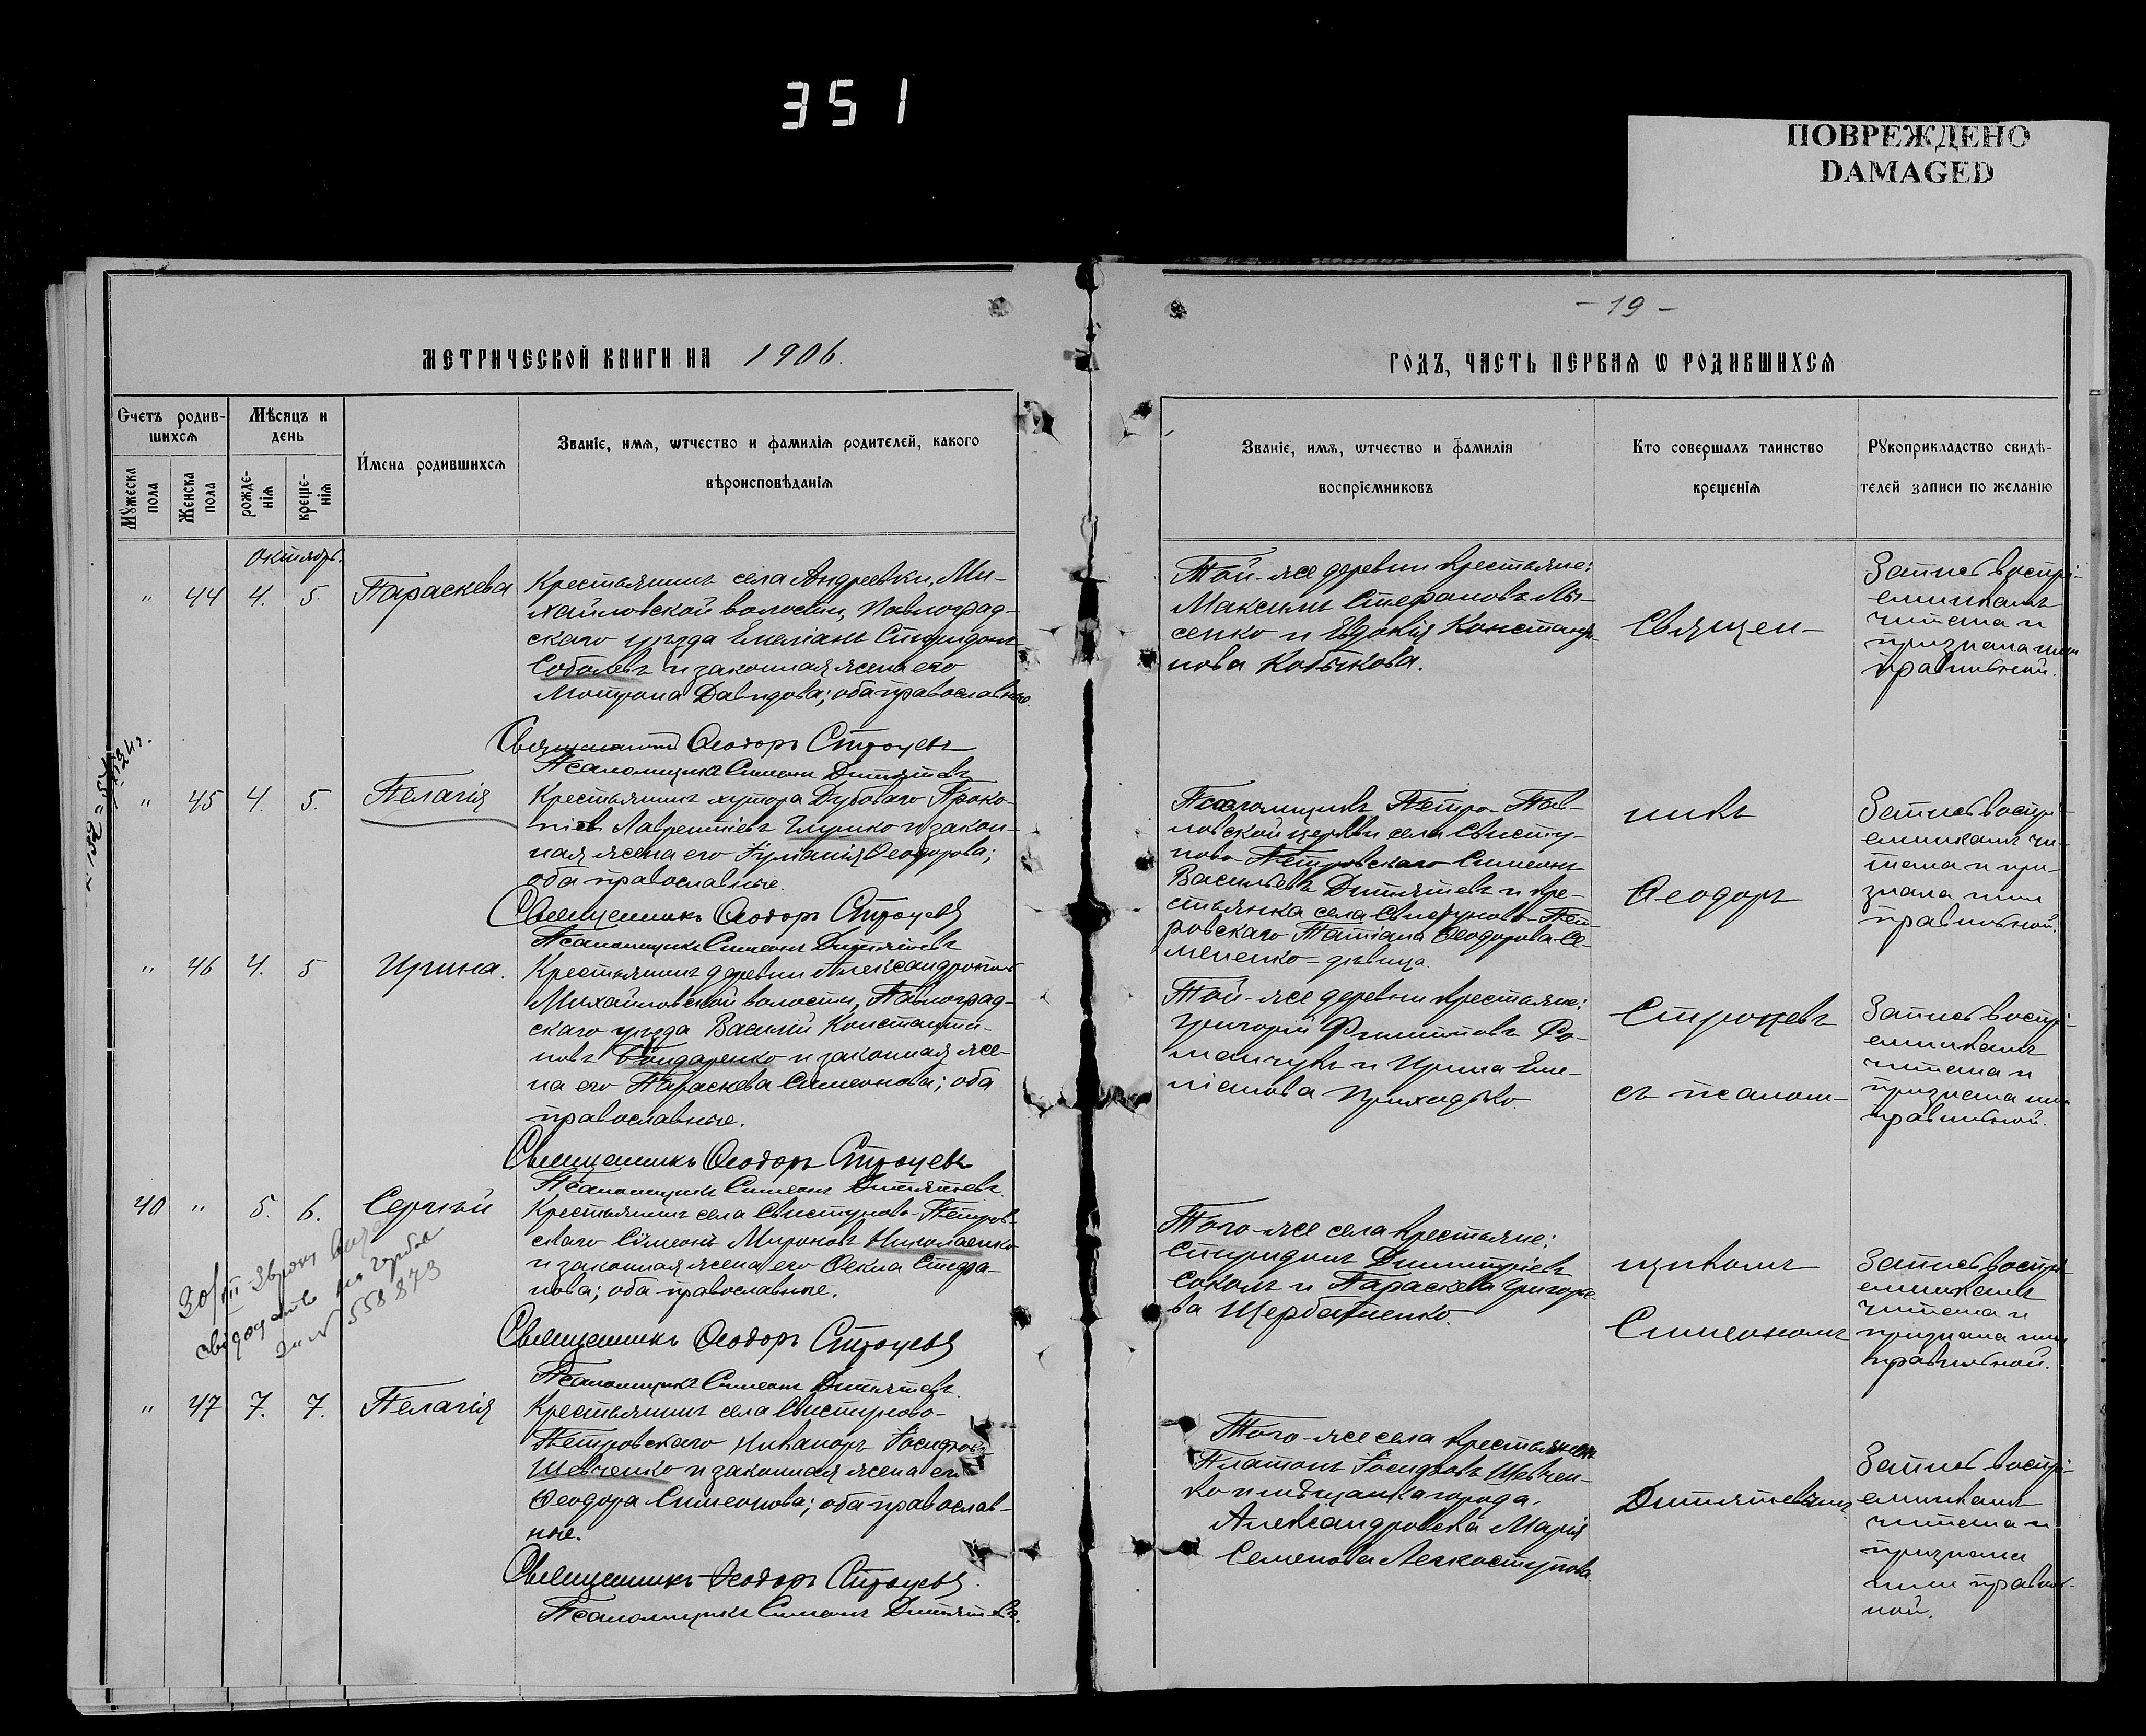 351
ПОВРЕЖДЕНО
DAMAGED
- 19 -
МЕТРИЧЕСКОЙ КНИГИ НА 1906.
ГОДЪ, ЧАСТЬ ПЕРВАЯ Ѡ РОДИВШИХСЯ
Счетъ родив-
шихся
Мѣсяцъ и
день
Имена родившихся
Званіе, имя, ѡтчество и фамилія родителей, какого
вѣроисповѣданія
Мужеска пола
Женска пола
рожде-
нія
креще-
нія
Званіе, имя, ѡтчество и фамилія
воспріемниковъ
Кто совершалъ таинство
крещенія
Рукоприкладство свидѣ-
телей записи по желанію
Октябрь.
" 44 4. 5. Параскева
Крестьянинъ села Андреевки, Ми-
хайловской волости, Павлоград-
скаго уѣзда Емеліанъ Спиридоновъ
Соболевъ и законная жена его
Мотрона Давидова; оба православные.
Священникъ Ѳеодоръ Строцевъ
Псаломщикъ Симеонъ Дитятевъ
Той-же деревни крестьяне:
Максимъ Стефановъ Лы-
сенко и Евдокія Константи-
нова Кобыкова.
Священ-
Запись воспрі-
емникамъ
читана и
признана ими
правильной.
" 45 4. 5. Пелагія
Крестьянинъ хутора Дубоваго Проко-
пій Лаврентіевъ Глушко и закон-
ная жена его Іуліанія Ѳеодорова;
оба православные.
Священникъ Ѳеодоръ Строцевъ
Псаломщикъ Симеонъ Дитятевъ
Псаломщикъ Петро-Пав-
ловской церкви села Свисту-
ново-Петровскаго Симеонъ
Васильевъ Дитятевъ и кре-
стьянка села Свистуново-Пет-
ровскаго Татіана Ѳеодорова Се-
мененко - дѣвица.
никъ
Ѳеодоръ
Запись воспрі-
емникамъ чи-
тана и при-
знана ими
правильной.
" 46 4. 5 Ирина.
Крестьянинъ деревни Александрополь
Михайловской волости, Павлоград-
скаго уѣзда Василій Константи-
новъ Бондаренко и законная же-
на его Параскева Симеонова; оба
православные.
Священникъ Ѳеодоръ Строцевъ
Псаломщикъ Симеонъ Дитятевъ.
Той-же деревни крестьяне:
Григорій Филипповъ Ро-
манчукъ и Ирина Еме-
ліанова Приходько.
Строцевъ
съ псалом-
Запись воспрі-
емникамъ
читана и
признана ими
правильной.
40 " 5. 6. Сергій
Крестьянинъ села Свистуново-Петров-
скаго Симеонъ Мироновъ Николаенко
и законная жена его Ѳекла Стефа-
нова; оба православные.
Священникъ Ѳеодоръ Строцевъ
Псаломщикъ Симеонъ Дитятевъ.
Того-же села крестьяне:
Спиридонъ Димитріевъ
Соколъ и Параскева Григорье-
ва Щербатенко.
щикомъ
Симеономъ
Запись воспрі-
емникамъ
читана и
признана ими
правильной.
558873
" 47 7. 7. Пелагія
Крестьянинъ села Свистуново-
Петровскаго Никаноръ Іосифовъ
Шевченко и законная жена его
Ѳеодора Симеонова; оба православ-
ные.
Священникъ Ѳеодоръ Строцевъ.
Псаломщикъ Симеонъ Дитятевъ.
Того-же села крестьянинъ
Платонъ Іосифовъ Шевчен-
ко и мѣщанка города
Александровска Марія
Семенова Легкоступова.
Дитятевымъ.
Запись воспрі-
емникамъ
читана и
признана
ими правиль-
ной.